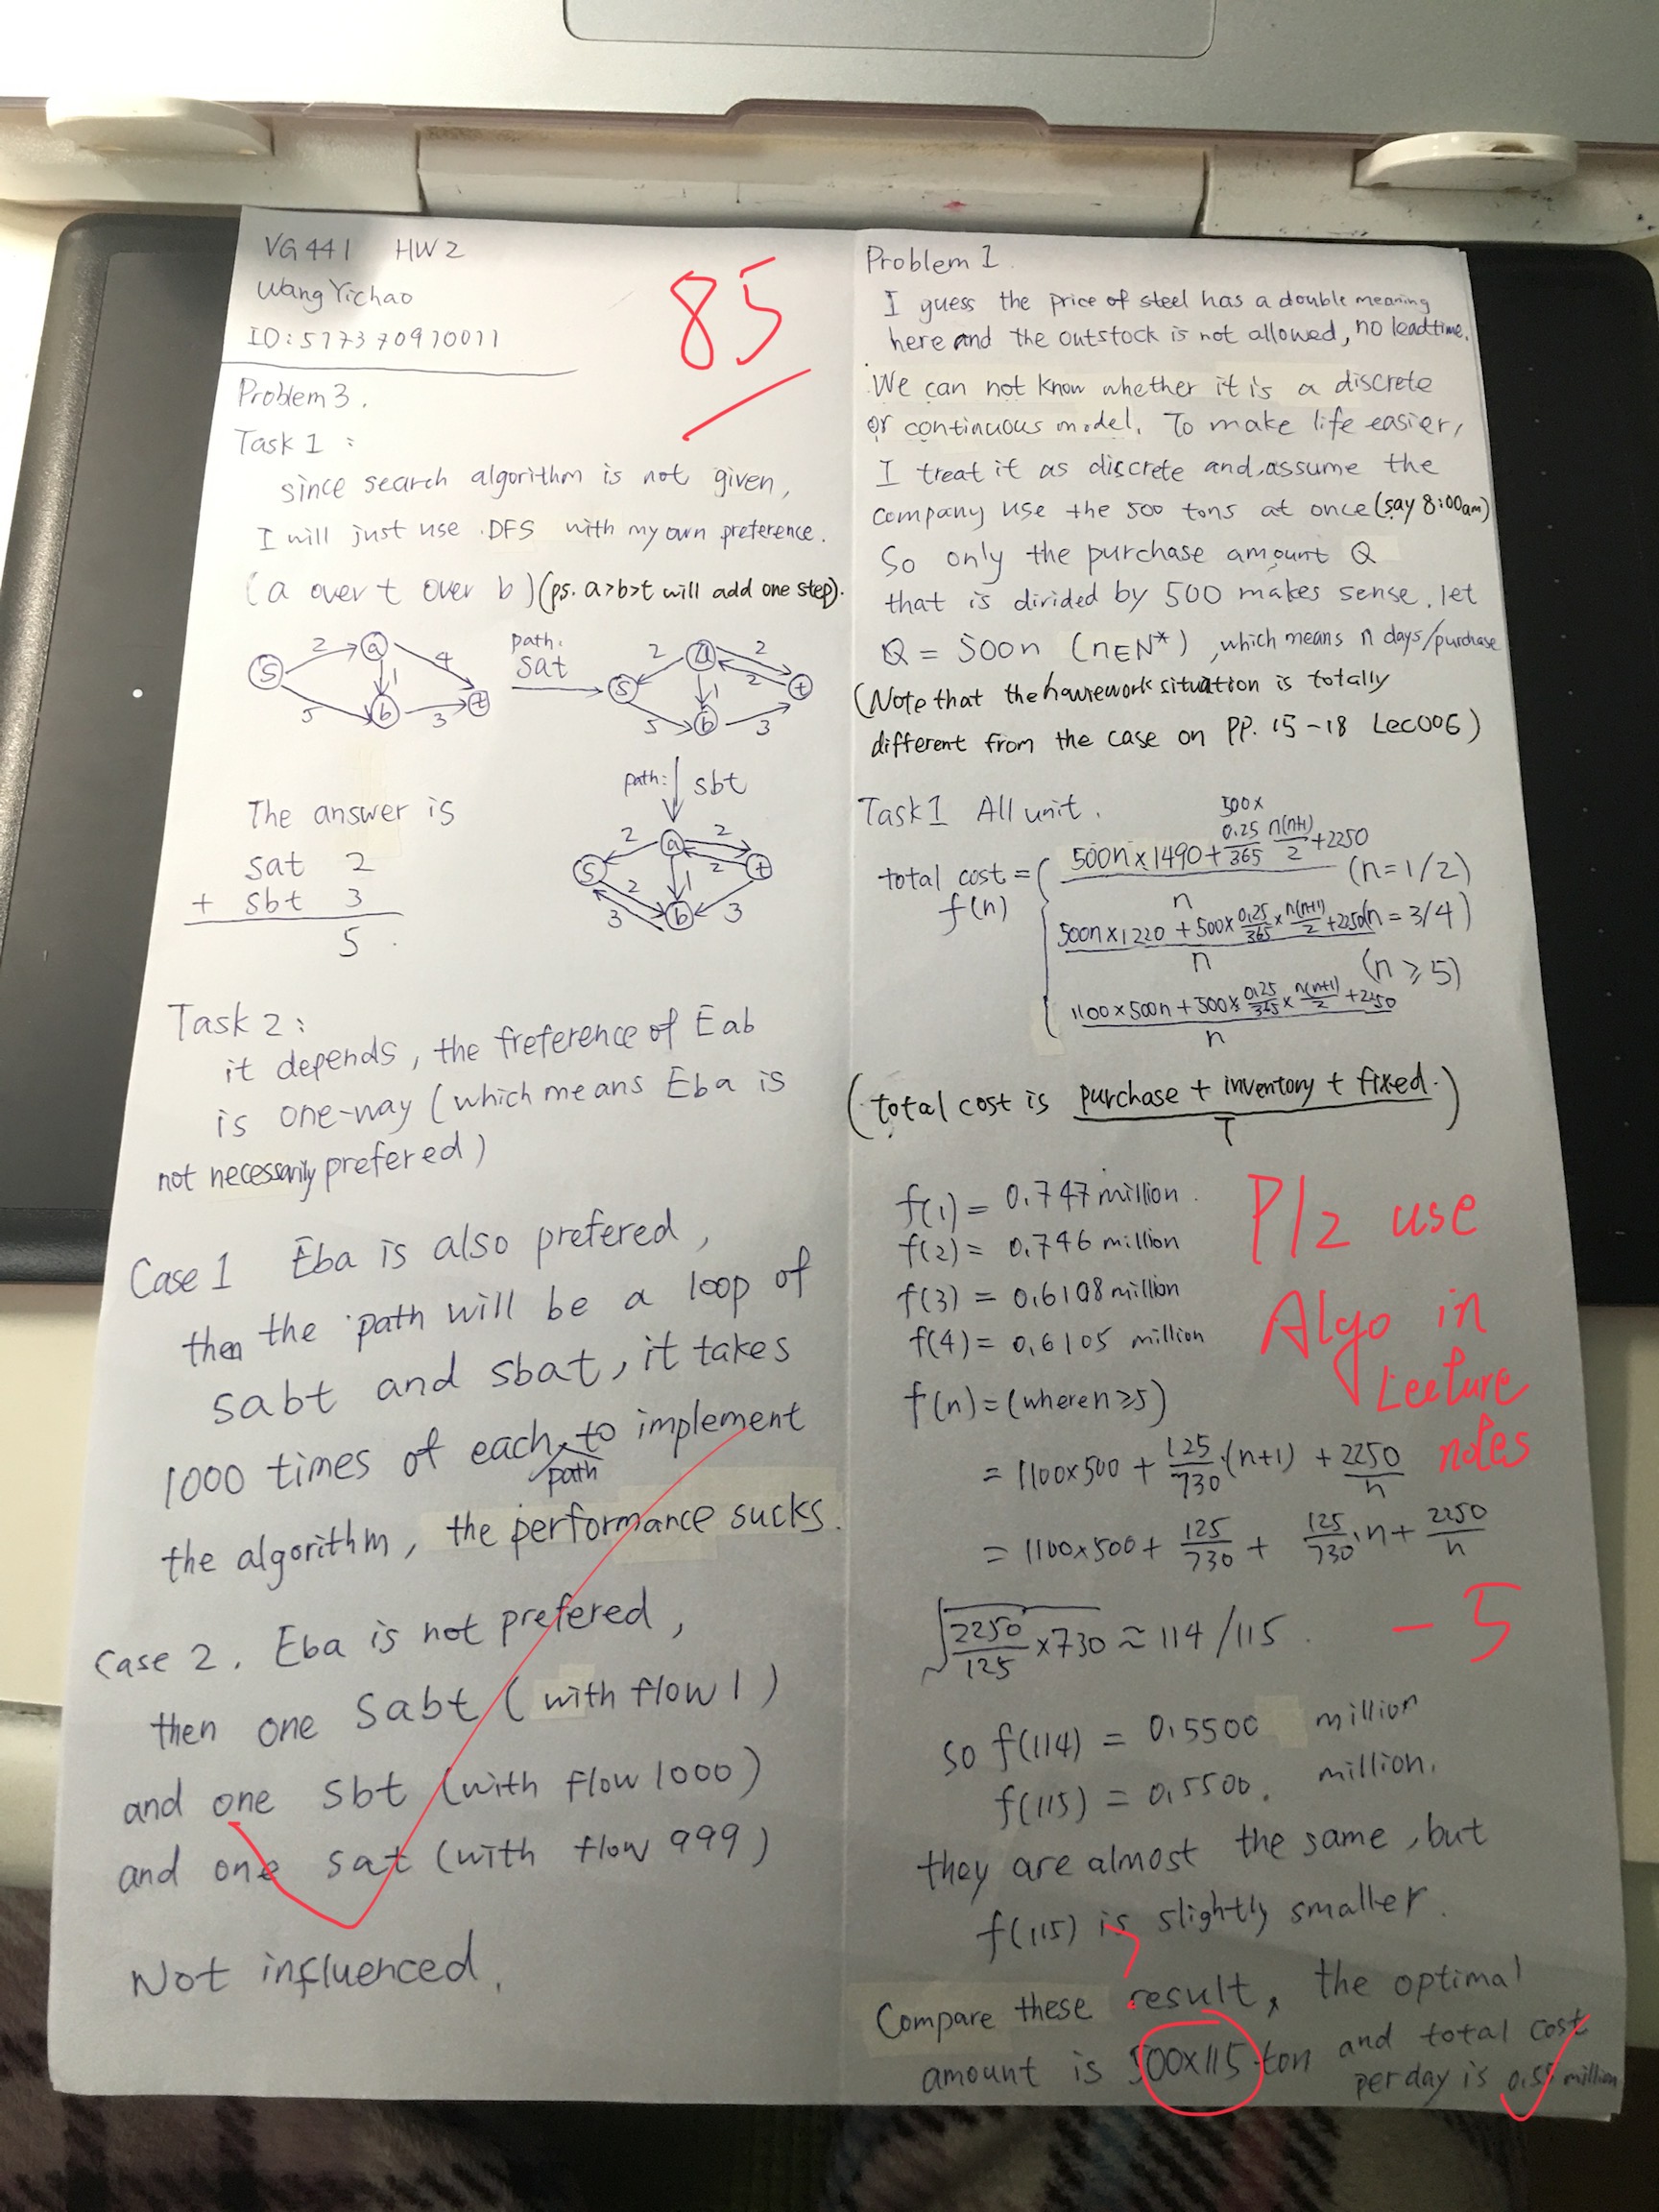 VG441 HW2
Wang Yichao
ID: 517370910011
85
Problem 3.
Task 1:
since search algorithm is not given,
I will just use DFS with my own preference.
(a over t over b) (ps. a>b>t will add one step).
s 2 a 4 t 1 5 b 3
path: sat
s 2 a 2 2 t 1 5 b 3
path: sbt
s 2 a 2 2 t 1 2 3 b 3
The answer is
sat 2
+ sbt 3
5.
Task 2:
it depends, the freference of Eab
is one-way (which means Eba is
not necessarily prefered)
Case 1 Eba is also prefered,
then the path will be a loop of
sabt and sbat, it takes
1000 times of each path to implement
the algorithm, the performance sucks.
Case 2. Eba is not prefered,
then one sabt (with flow 1)
and one sbt (with flow 1000)
and one sat (with flow 999)
Not influenced.
Problem 1.
I guess the price of steel has a double meaning
here and the outstock is not allowed, no leadtime.
We can not know whether it is a discrete
or continuous model. To make life easier,
I treat it as discrete and assume the
company use the 500 tons at once (say 8:00am)
So only the purchase amount Q
that is divided by 500 makes sense. let
Q = 500n (n∈N*), which means n days/purchase
(Note that the homework situation is totally
different from the case on PP. 15-18 Lec006)
Task 1 All unit.
total cost f(n) = { (500n×1490 + 500× 0.25/365 n(n+1)/2 + 2250)/n (n=1/2)
(500n×1220 + 500× 0.25/365 × n(n+1)/2 + 2250)/n (n=3/4)
(1100×500n + 500× 0.25/365 × n(n+1)/2 + 2250)/n (n≥5)
(total cost is (purchase + inventory + fixed.)/T)
f(1) = 0.747 million.
f(2) = 0.746 million
f(3) = 0.6108 million
f(4) = 0.6105 million
Plz use
Algo in
Lecture
notes
f(n) = (where n≥5)
= 1100×500 + 125/730 (n+1) + 2250/n
= 1100×500 + 125/730 + 125/730 · n + 2250/n
√(2250/125 ×730) ≈ 114/115.
-5
so f(114) = 0.5500 million
f(115) = 0.5500. million.
they are almost the same, but
f(115) is slightly smaller.
Compare these result, the optimal
amount is 500×115 ton and total cost
per day is 0.55 million